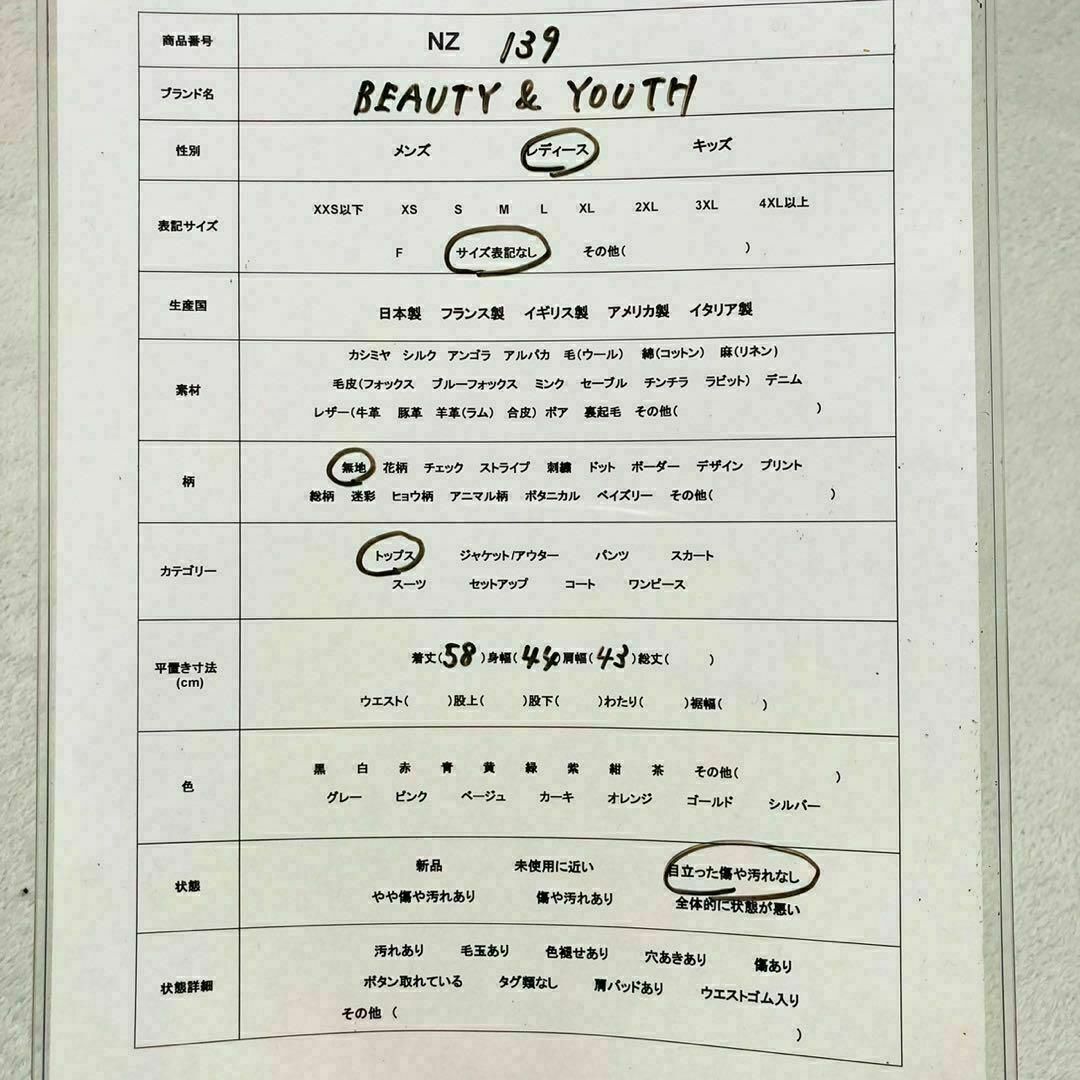 商品番号 NZ 139
ブランド名 BEAUTY & YOUTH
性別 メンズ レディース キッズ
XXS以下 XS S M L XL 2XL 3XL 4XL以上
表記サイズ
F サイズ表記なし その他( )
生産国 日本製 フランス製 イギリス製 アメリカ製 イタリア製
カシミヤ シルク アンゴラ アルパカ 毛(ウール) 綿(コットン) 麻(リネン)
素材 毛皮(フォックス ブルーフォックス ミンク セーブル チンチラ ラビット) デニム
レザー(牛革 豚革 羊革(ラム) 合皮) ボア 裏起毛 その他( )
柄 無地 花柄 チェック ストライプ 刺繍 ドット ボーダー デザイン プリント
総柄 迷彩 ヒョウ柄 アニマル柄 ボタニカル ペイズリー その他( )
トップス ジャケット/アウター パンツ スカート
カテゴリー
スーツ セットアップ コート ワンピース
平置き寸法 着丈(58)身幅(44)肩幅(43)総丈( )
(cm)
ウエスト( )股上( )股下( )わたり( )裾幅( )
黒 白 赤 青 黄 緑 紫 紺 茶 その他( )
色
グレー ピンク ベージュ カーキ オレンジ ゴールド シルバー
新品 未使用に近い 目立った傷や汚れなし
状態
やや傷や汚れあり 傷や汚れあり 全体的に状態が悪い
汚れあり 毛玉あり 色褪せあり 穴あきあり 傷あり
状態詳細 ボタン取れている タグ類なし 肩パッドあり ウエストゴム入り
その他 ( )